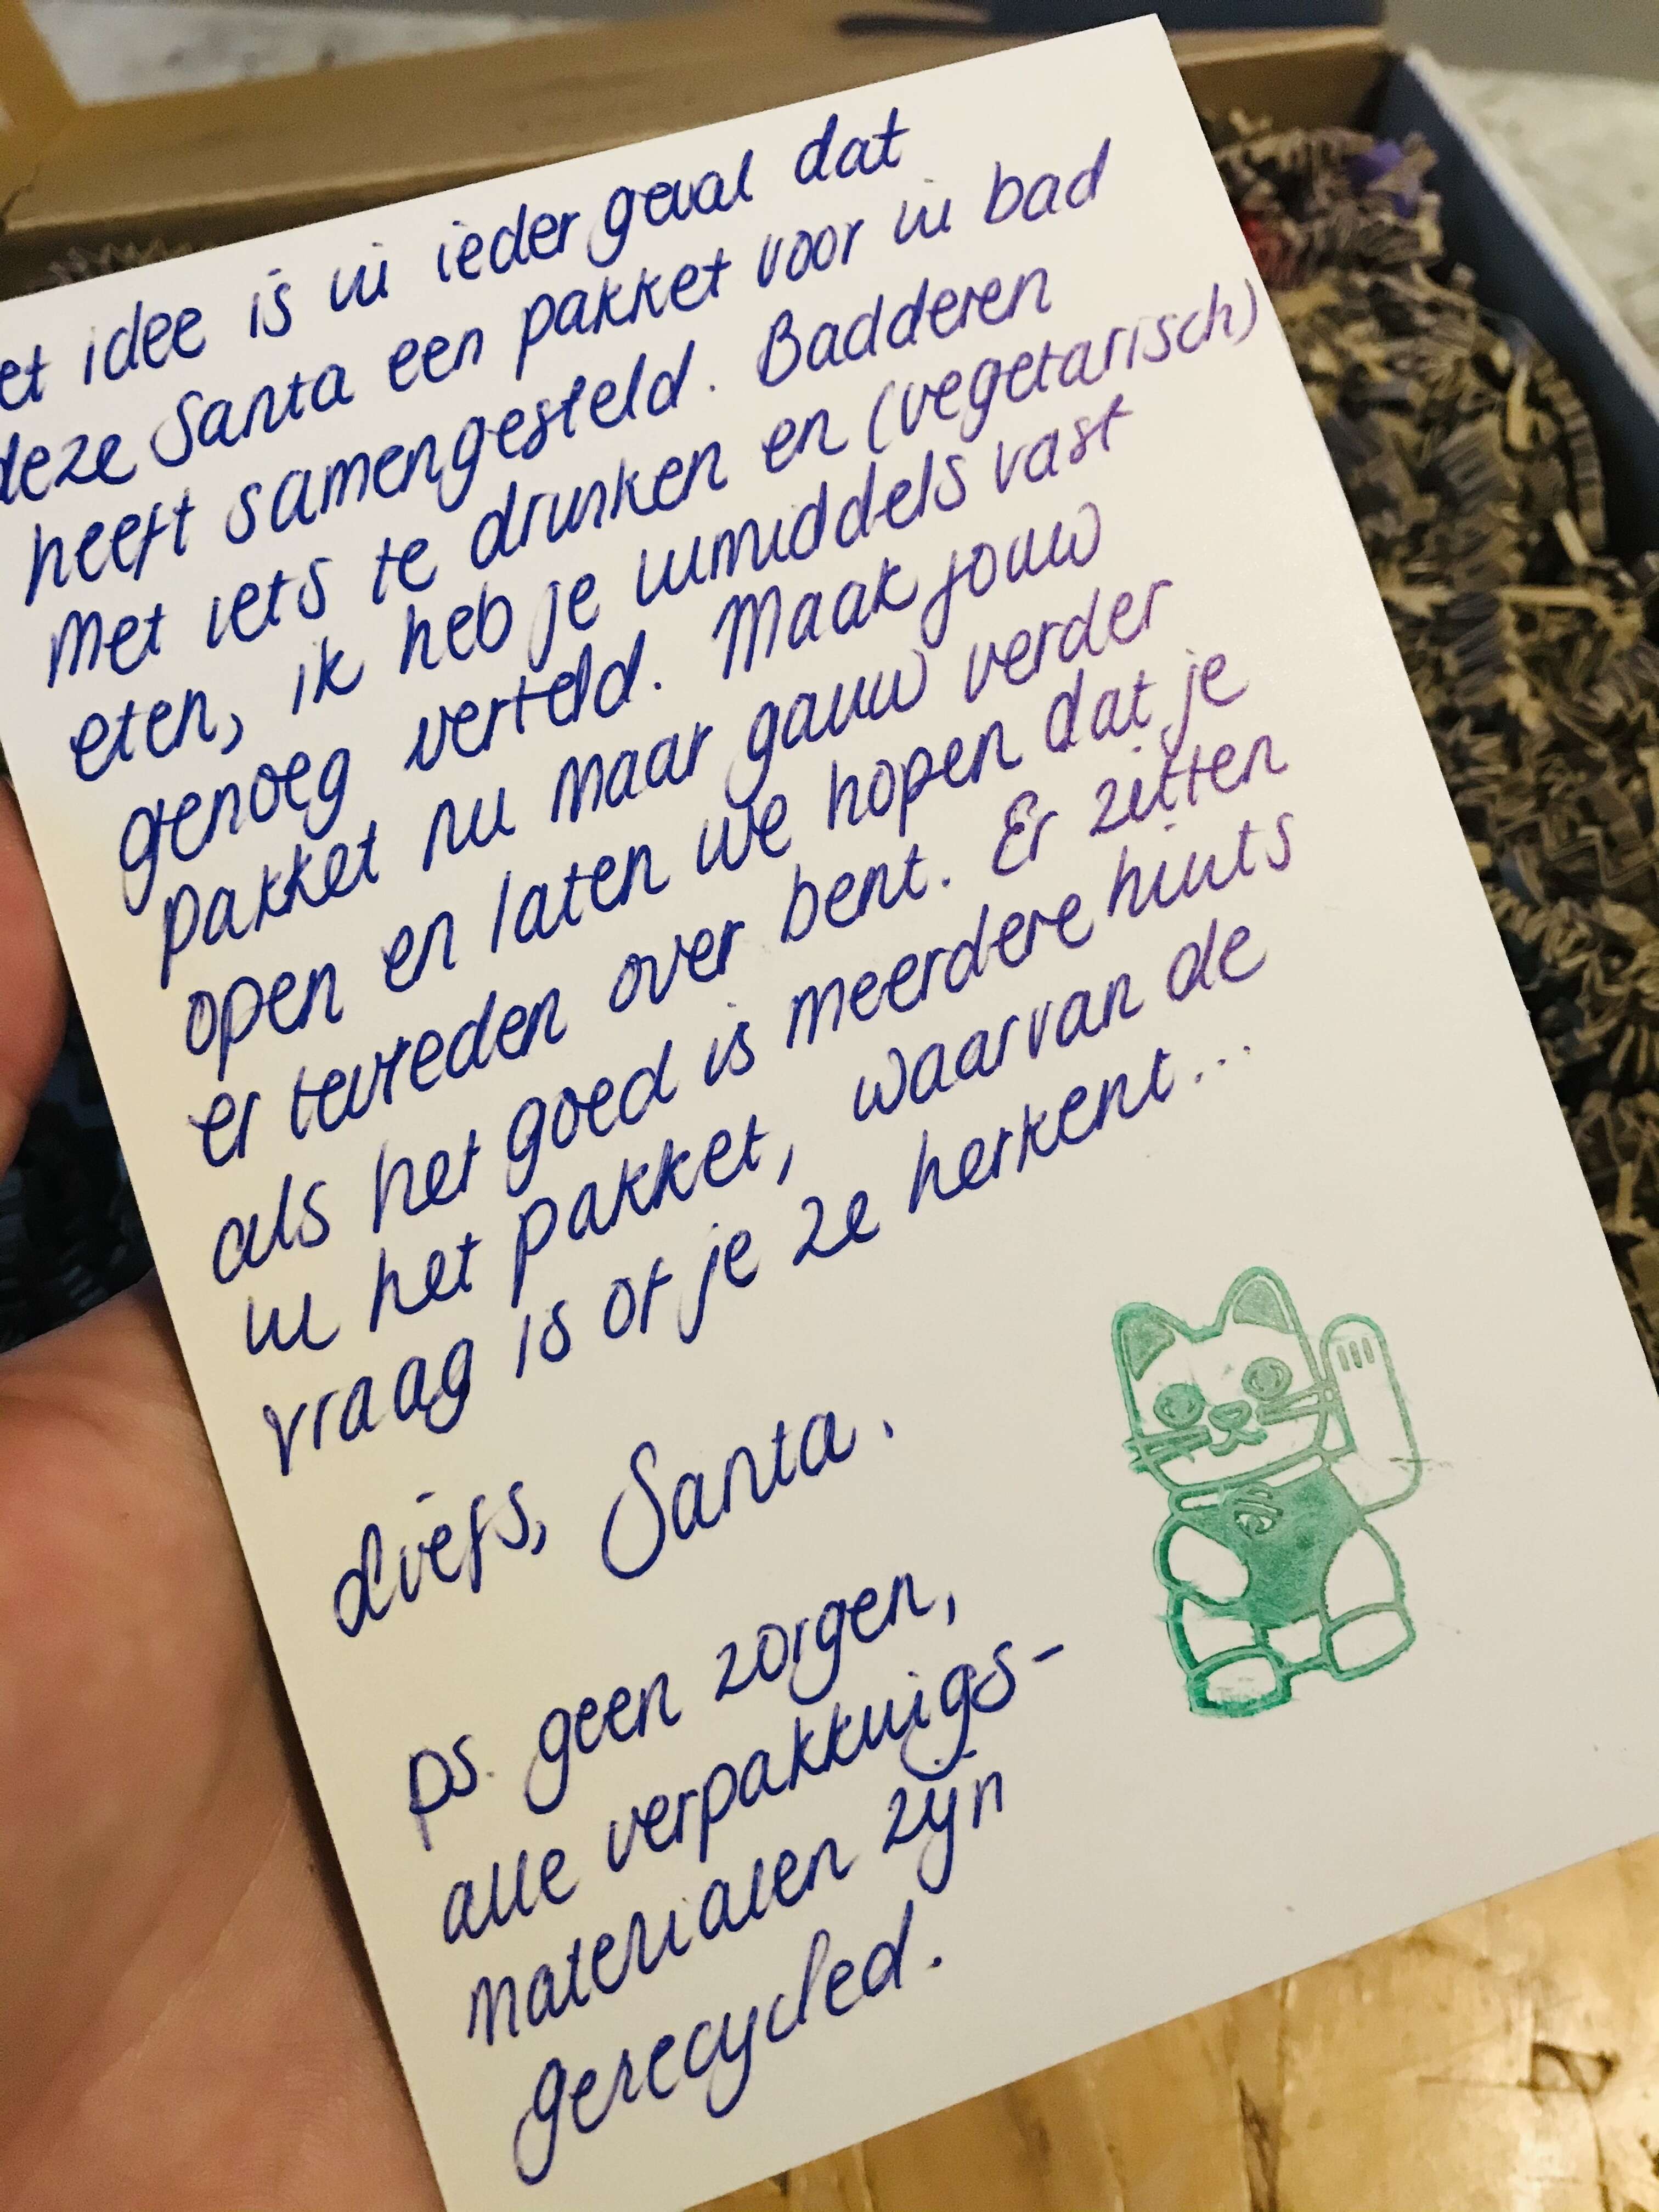 et idee is in ieder geval dat
deze Santa een pakket voor in bad
heeft samengesteld. Badderen
met iets te drinken en (vegetarisch)
eten, ik heb je inmiddels vast
genoeg verteld. Maak jouw
pakket nu maar gauw verder
open en laten we hopen dat je
er tevreden over bent. Er zitten
als het goed is meerdere hints
in het pakket, waarvan de
vraag is of je ze herkent...
Liefs, Santa.
ps. geen zorgen,
alle verpakkings-
materialen zijn
gerecycled.